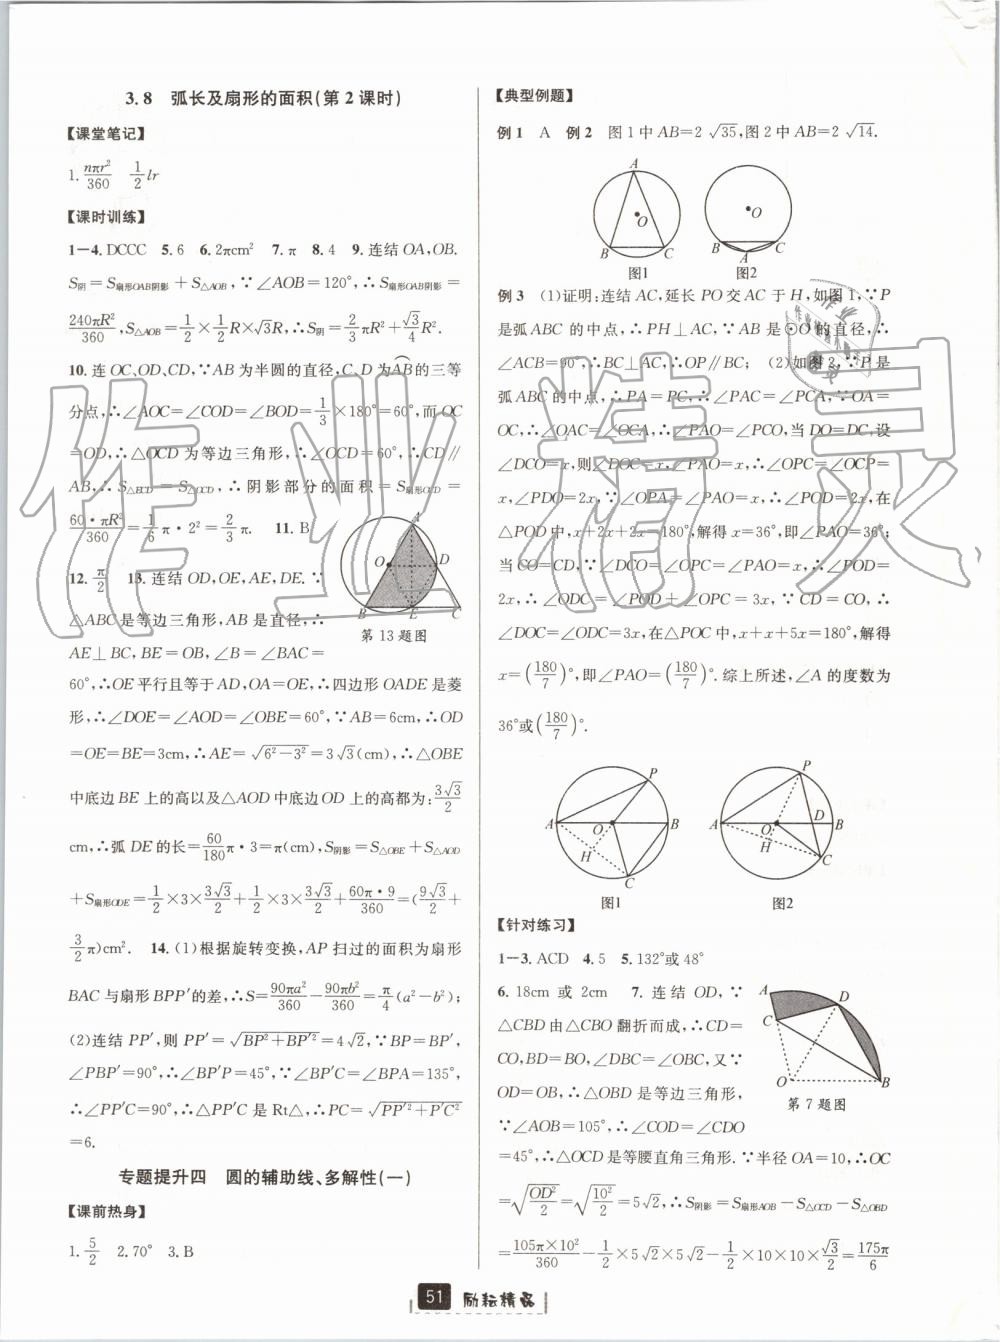 3.8 弧长及扇形的面积(第2课时)
【课堂笔记】
1. nπr²/360  1/2 lr
【课时训练】
1—4. DCCC 5. 6 6. 2πcm² 7. π 8. 4 9. 连结OA,OB.
S阴=S扇形OAB阴影+S△AOB,∵∠AOB=120°,∴S扇形OAB阴影=
240πR²/360,S△AOB=1/2×1/2R×√3R,∴S阴=2/3πR²+√3/4R².
10. 连OC,OD,CD,∵AB为半圆的直径,C,D为AB⌒的三等
分点,∴∠AOC=∠COD=∠BOD=1/3×180°=60°,而OC
=OD,∴△OCD为等边三角形,∴∠OCD=60°,∴CD∥
AB,∴S△ECD=S△OCD,∴阴影部分的面积=S扇形OCD=
60·πR²/360=1/6π·2²=2/3π. 11. B
12. π/2 13. 连结OD,OE,AE,DE.∵
△ABC是等边三角形,AB是直径,∴
AE⊥BC,BE=OB,∠B=∠BAC=
60°,∴OE平行且等于AD,OA=OE,∴四边形OADE是菱
形,∴∠DOE=∠AOD=∠OBE=60°,∵AB=6cm,∴OD
=OE=BE=3cm,∴AE=√(6²−3²)=3√3(cm),∴△OBE
中底边BE上的高以及△AOD中底边OD上的高都为:3√3/2
cm,∴弧DE的长=60/180π·3=π(cm),S阴影=S△OBE+S△AOD
+S扇形ODE=1/2×3×3√3/2+1/2×3×3√3/2+60π·9/360=(9√3/2+
3/2π)cm². 14. (1)根据旋转变换,AP扫过的面积为扇形
BAC与扇形BPP′的差,∴S=90πa²/360−90πb²/360=π/4(a²−b²);
(2)连结PP′,则PP′=√(BP²+BP′²)=4√2,∵BP=BP′,
∠PBP′=90°,∴∠BP′P=45°,∵∠BP′C=∠BPA=135°,
∴∠PP′C=90°,∴△PP′C是Rt△,∴PC=√(PP′²+P′C²)
=6.
A
O
D
B
E
C
第13题图
专题提升四 圆的辅助线、多解性(一)
【课前热身】
1. 5/2 2. 70° 3. B
【典型例题】
例1 A 例2 图1中AB=2√35,图2中AB=2√14.
A
O
B
C
图1
O
B
C
A
图2
例3 (1)证明:连结AC,延长PO交AC于H,如图1,∵P
是弧ABC的中点,∴PH⊥AC,∵AB是⊙O的直径,∴
∠ACB=90°,∴BC⊥AC,∴OP∥BC; (2)如图2,∵P是
弧ABC的中点,∴PA=PC,∴∠PAC=∠PCA,∵OA=
OC,∴∠OAC=∠OCA,∴∠PAO=∠PCO,当DO=DC,设
∠DCO=x,则∠DOC=x,∠PAO=x,∴∠OPC=∠OCP=
x,∠PDO=2x,∵∠OPA=∠PAO=x,∴∠POD=2x,在
△POD中,x+2x+2x=180°,解得x=36°,即∠PAO=36°;
当CO=CD,∵∠DCO=∠OPC=∠PAO=x,∴∠POD=
2x,∴∠ODC=∠POD+∠OPC=3x,∵CD=CO,∴
∠DOC=∠ODC=3x,在△POC中,x+x+5x=180°,解得
x=(180/7)°,即∠PAO=(180/7)°.综上所述,∠A的度数为
36°或(180/7)°.
P
A
O
B
H
C
图1
P
D
A
O
B
H
C
图2
【针对练习】
1—3. ACD 4. 5 5. 132°或48°
6. 18cm或2cm 7. 连结OD,∵
△CBD由△CBO翻折而成,∴CD=
CO,BD=BO,∠DBC=∠OBC,又∵
OD=OB,∴△OBD是等边三角形,
∵∠AOB=105°,∴∠COD=∠CDO
=45°,∴△OCD是等腰直角三角形.∵半径OA=10,∴OC
=√(OD²/2)=√(10²/2)=5√2,∴S阴影=S扇形AOB−S△OCD−S△OBD
=105π×10²/360−1/2×5√2×5√2−1/2×10×10×√3/2=175π/6
A
D
C
O
B
第7题图
51 励耘精品
作业精灵